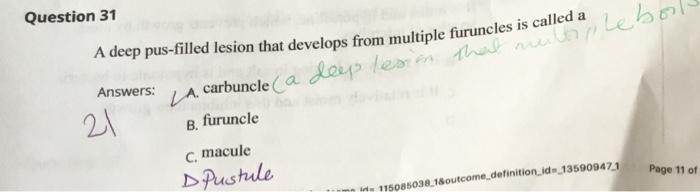 Question 31
A deep pus-filled lesion that develops from multiple furuncles is called a
Answers: A. carbuncle (a deep lesion that multiple boils
21
B. furuncle
C. macule
D Pustule
id=_115085038_1&outcome_definition_id=_13590947_1
Page 11 of